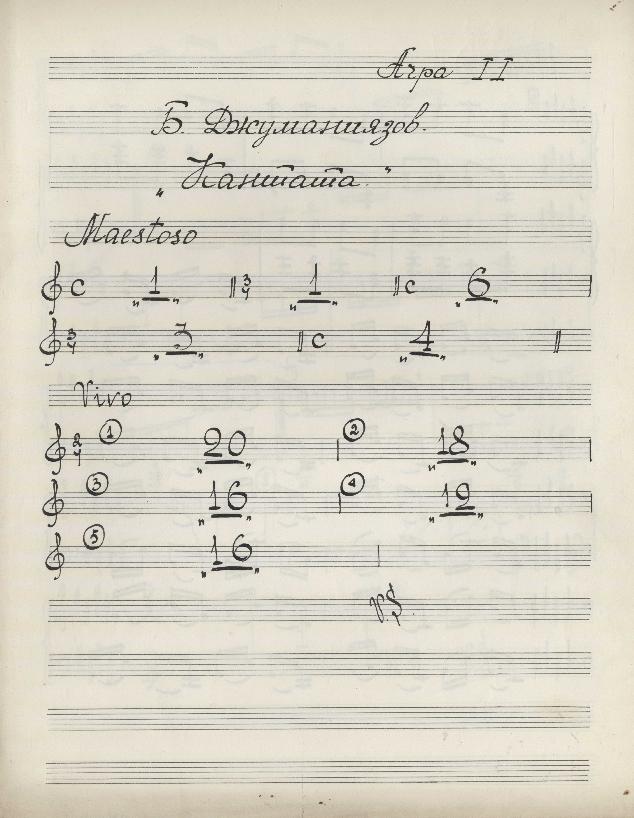 Arpa II
Б. Джуманиязов.
„Кантата."
Maestoso
C „1" 3/4 „1" C „6"
3/4 „3" C „4"
Vivo
2/4 1 „20" 2 „18"
3 „16" 4 „12"
5 „16"
V.S.